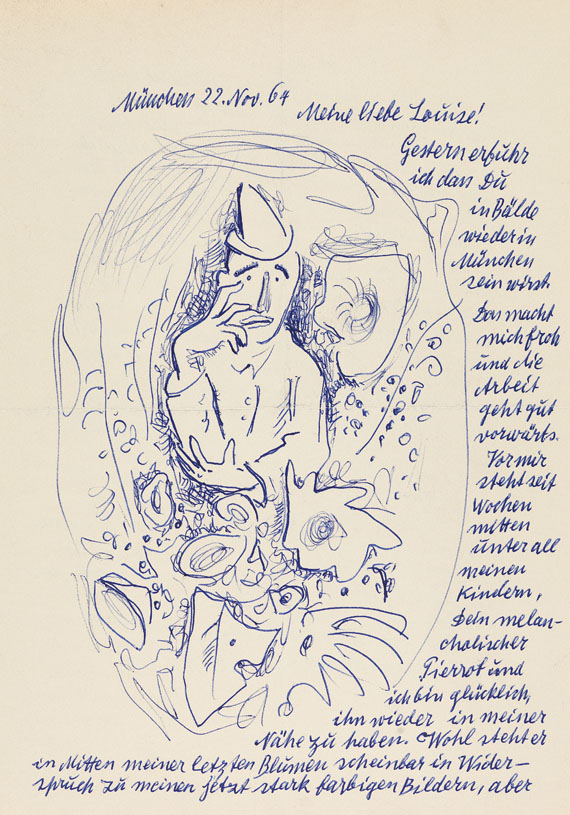 München 22. Nov. 64
Meine liebe Louise!
Gestern erfuhr
ich dass Du
in Bälde
wieder in
München
sein wirst.
Das macht
mich froh
und die
Arbeit
geht gut
vorwärts.
Vor mir
steht seit
Wochen
mitten
unter all
meinen
Kindern,
Dein melan-
cholischer
Pierrot und
ich bin glücklich,
ihn wieder in meiner
Nähe zu haben. Wohl steht er
in Mitten meiner letzten Blumen scheinbar in Wider-
spruch zu meinen jetzt stark farbigen Bildern, aber